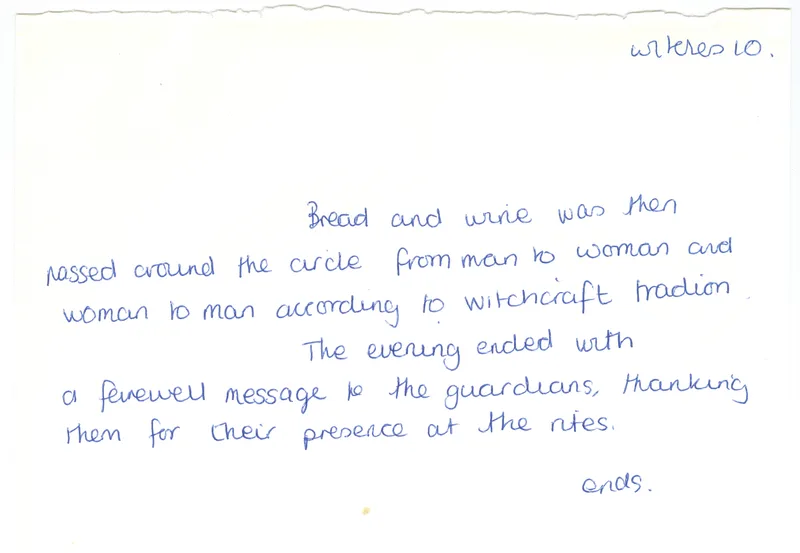 witches 10.
Bread and wine was then
passed around the circle from man to woman and
woman to man according to witchcraft tradion
The evening ended with
a farewell message to the guardians, thanking
them for their presence at the rites.
ends.